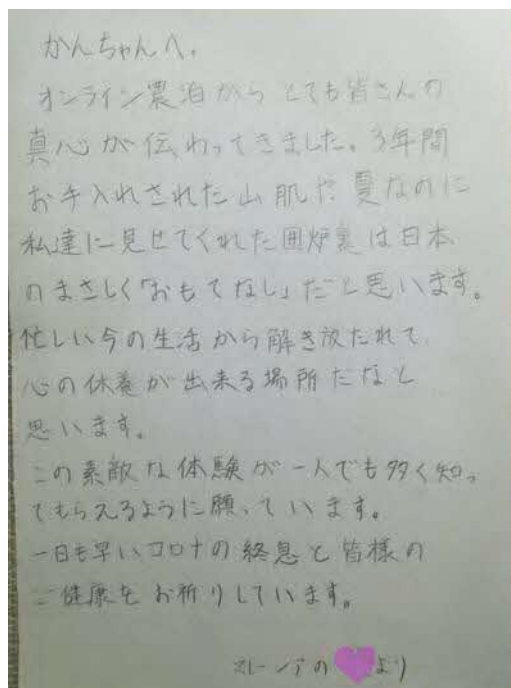 かんちゃんへ。
オンライン農泊からとても皆さんの
真心が伝わってきました。3年間
お手入れされた山肌や夏なのに
私達に見せてくれた囲炉裏は日本
のまさしく「おもてなし」だと思います。
忙しい今の生活から解き放たれて
心の休養が出来る場所だなと
思います。
この素敵な体験が一人でも多く知っ
てもらえるように願っています。
一日も早いコロナの終息と皆様の
ご健康をお祈りしています。
の より